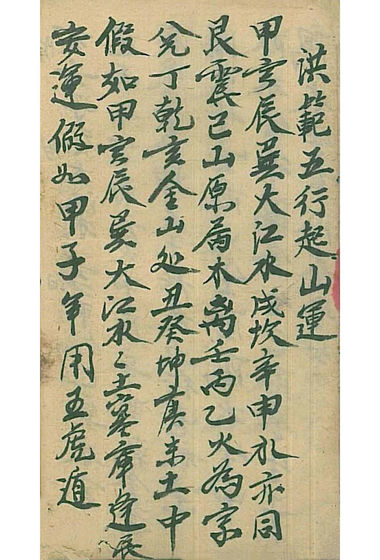 洪範五行起山運
甲寅辰巽大江水戌坎辛申水亦同
艮震巳山原屬木离壬丙乙火為宗
兌丁乾亥金山处丑癸坤庚未土中
假如甲寅辰巽大江水々土墓庫逢辰
安運假如甲子年用五虎遁